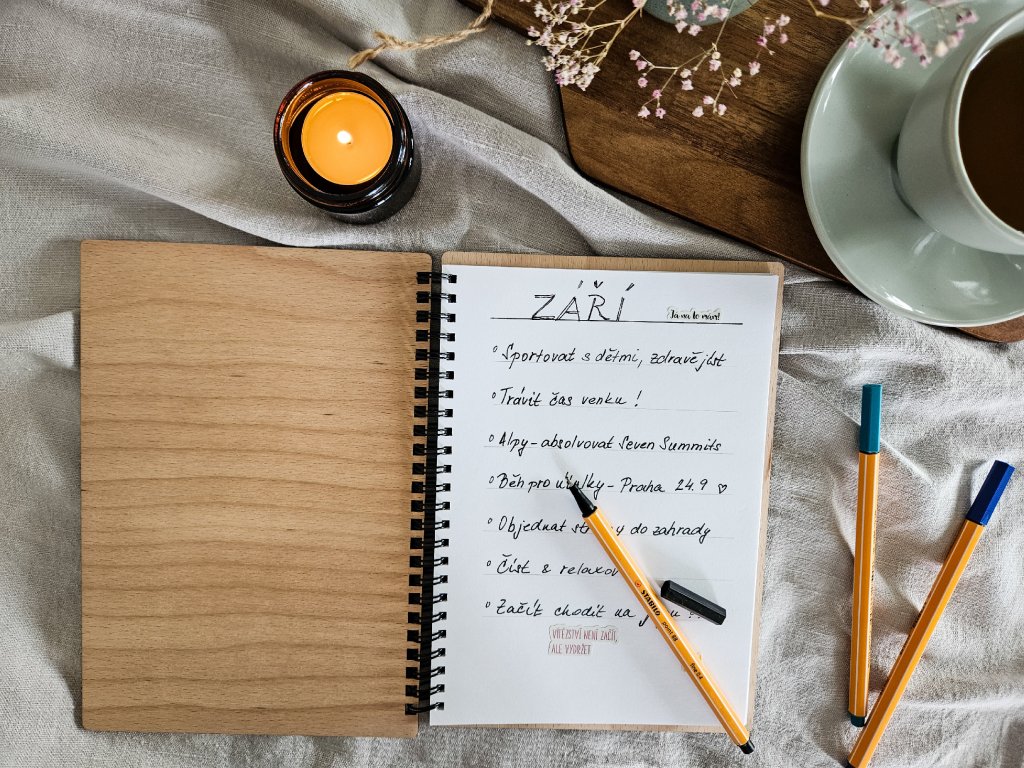 ZÁŘÍ
Já na to mám!
Sportovat s dětmi, zdravě jíst
Trávit čas venku!
Alpy - absolvovat Seven Summits
Běh pro - Praha 24.9 ♡
Objednat do zahrady
Číst &
Začít chodit na
VÍTĚZSTVÍ NENÍ ZAČÍT,
ALE VYDRŽET
STABILO point 88 fine 0,4